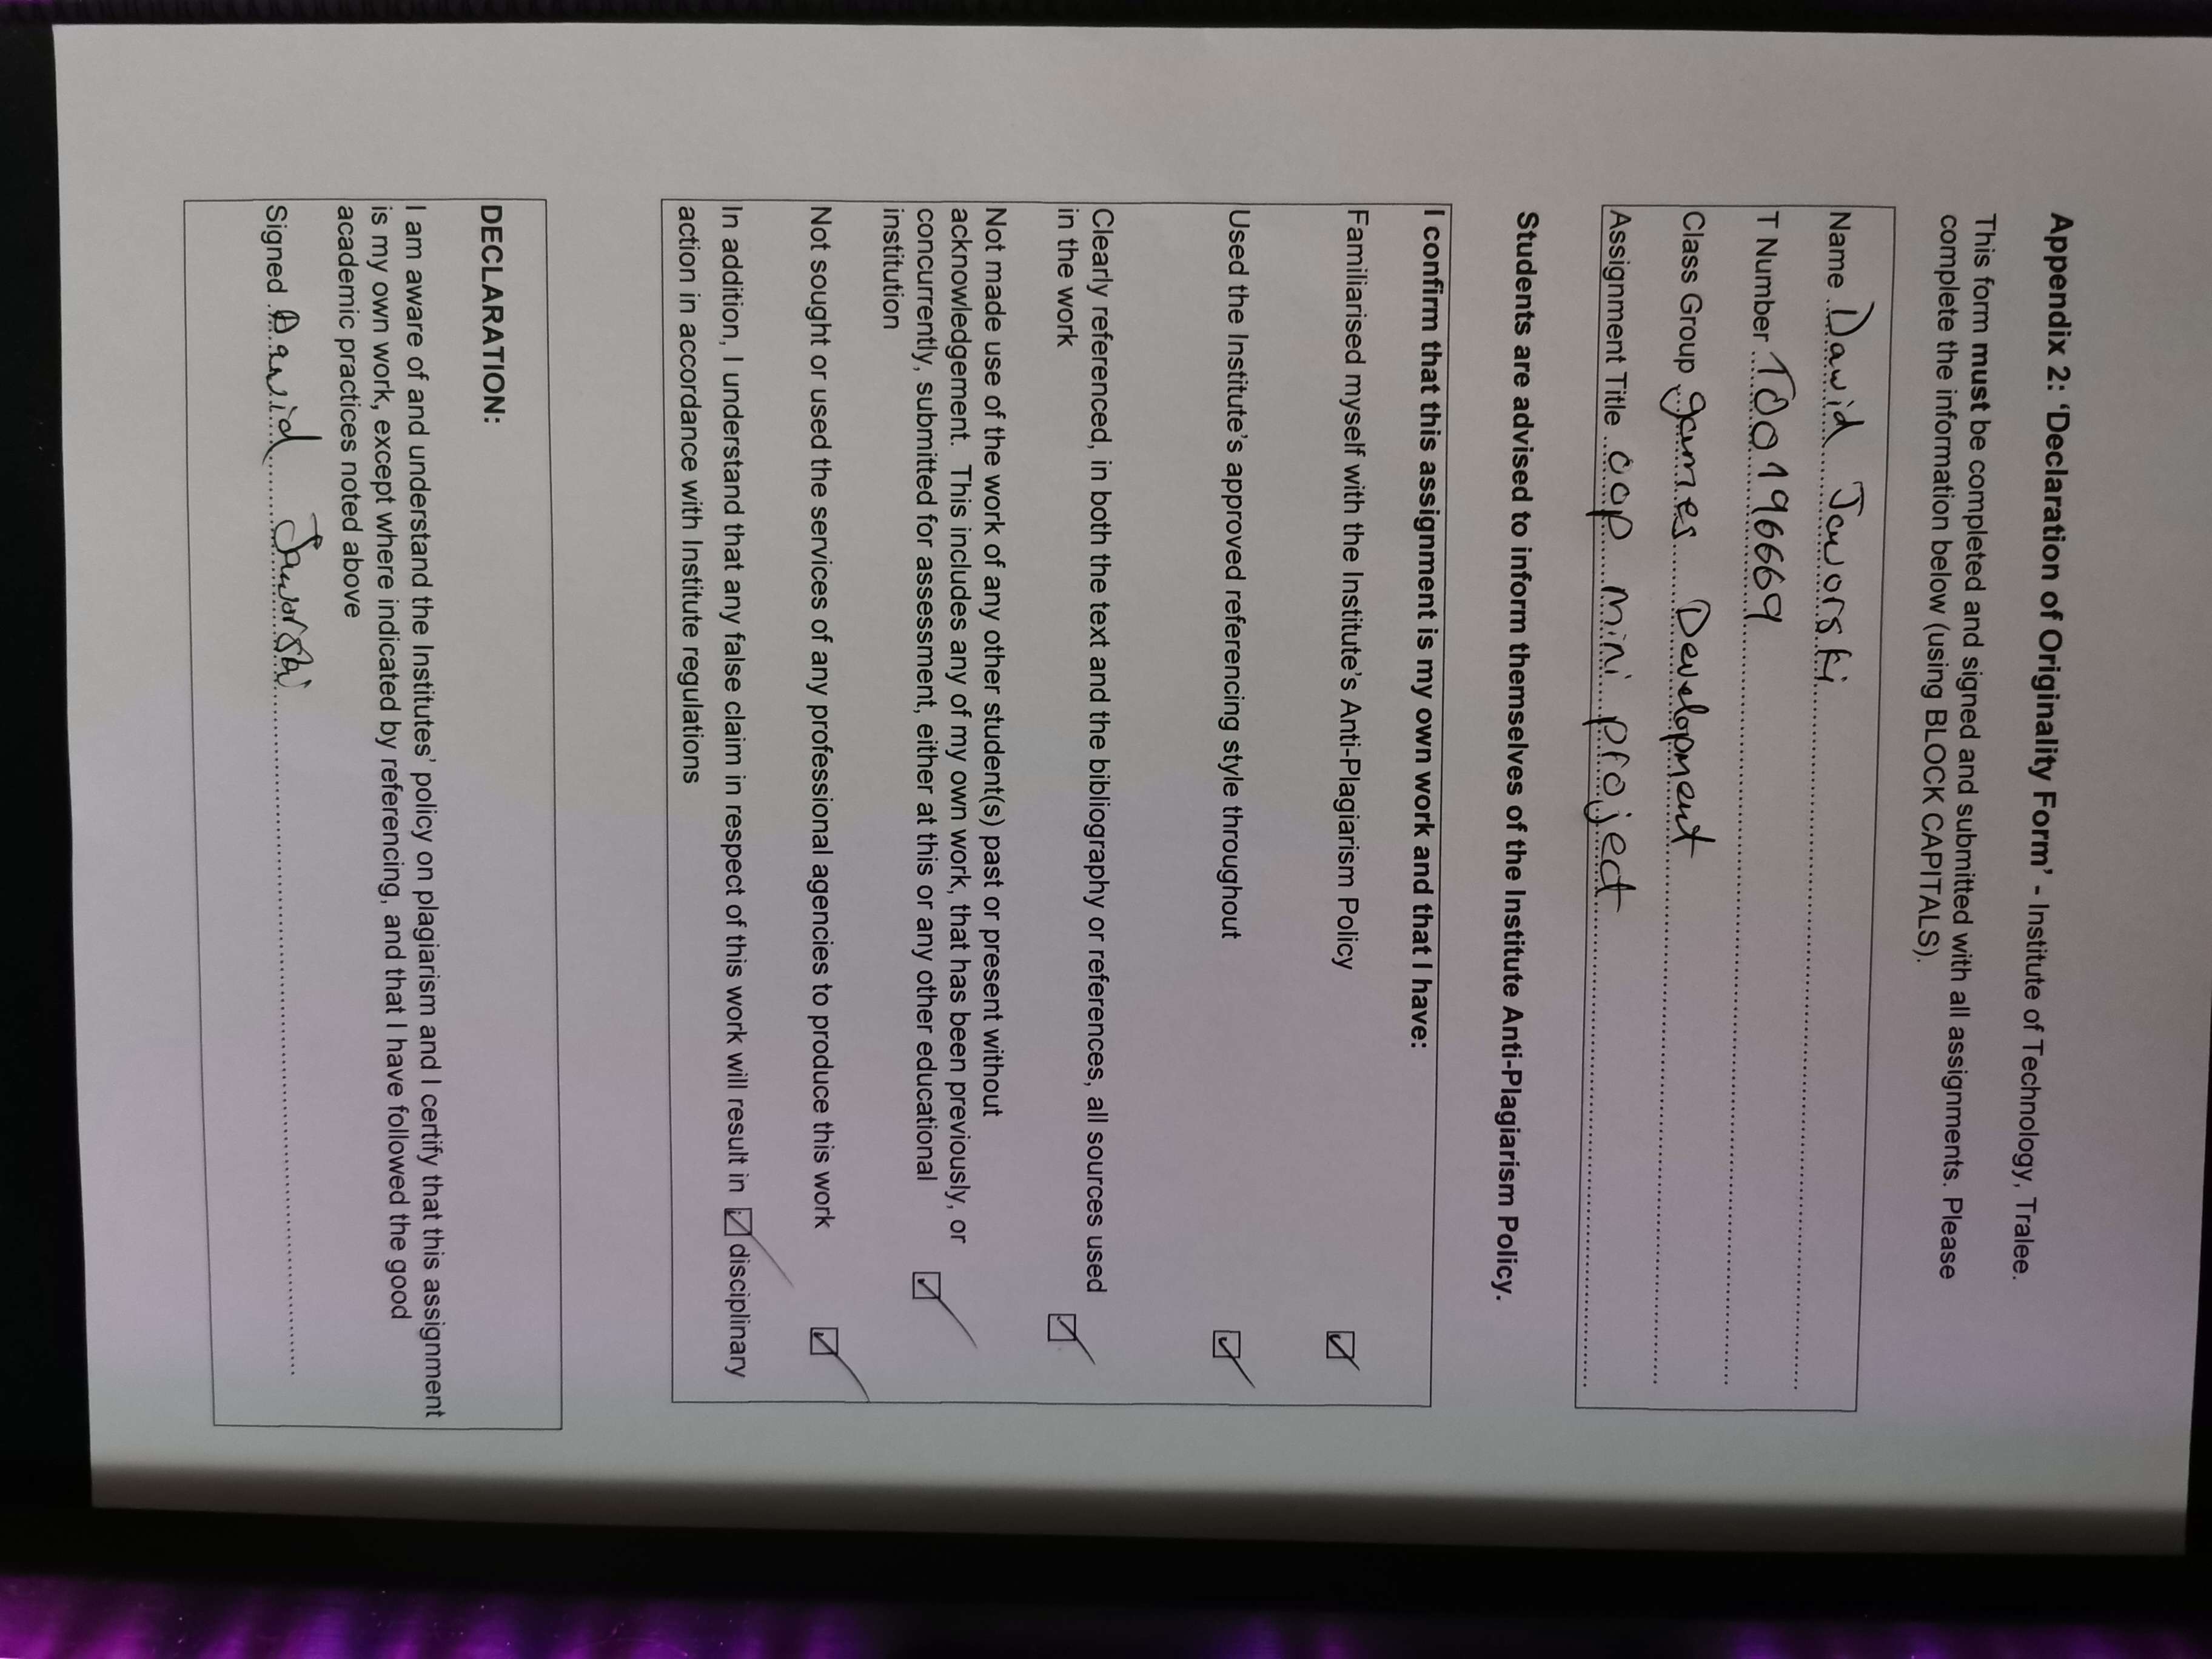 Appendix 2: ‘Declaration of Originality Form’ - Institute of Technology, Tralee.
This form must be completed and signed and submitted with all assignments. Please
complete the information below (using BLOCK CAPITALS).
Name Dawid Jaworski
T Number T00196669
Class Group games Development
Assignment Title oop mini project
Students are advised to inform themselves of the Institute Anti-Plagiarism Policy.
I confirm that this assignment is my own work and that I have:
Familiarised myself with the Institute’s Anti-Plagiarism Policy ☑
Used the Institute’s approved referencing style throughout ☑
Clearly referenced, in both the text and the bibliography or references, all sources used
in the work ☑
Not made use of the work of any other student(s) past or present without
acknowledgement. This includes any of my own work, that has been previously, or
concurrently, submitted for assessment, either at this or any other educational ☑
institution
Not sought or used the services of any professional agencies to produce this work ☑
In addition, I understand that any false claim in respect of this work will result in ☑ disciplinary
action in accordance with Institute regulations
DECLARATION:
I am aware of and understand the Institutes’ policy on plagiarism and I certify that this assignment
is my own work, except where indicated by referencing, and that I have followed the good
academic practices noted above
Signed Dawid Jaworski